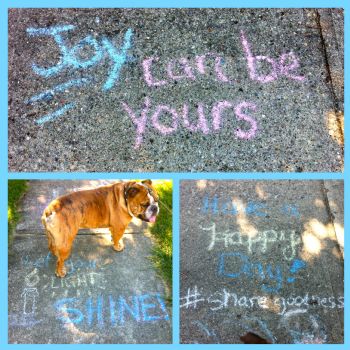 Joy can be
yours
light
SHINE!
Have a
Happy
Day!
#share goodness